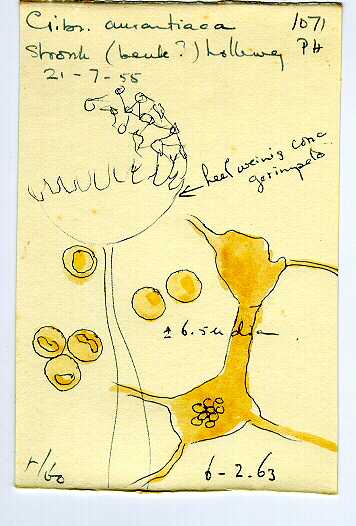 Cribr. aurantiaca 1071
Stronk (beuk?) Holliweg PH
21-7-55
heel weinig conc
gerimpeld
± 6.5 u diam
r/60
6-2.63